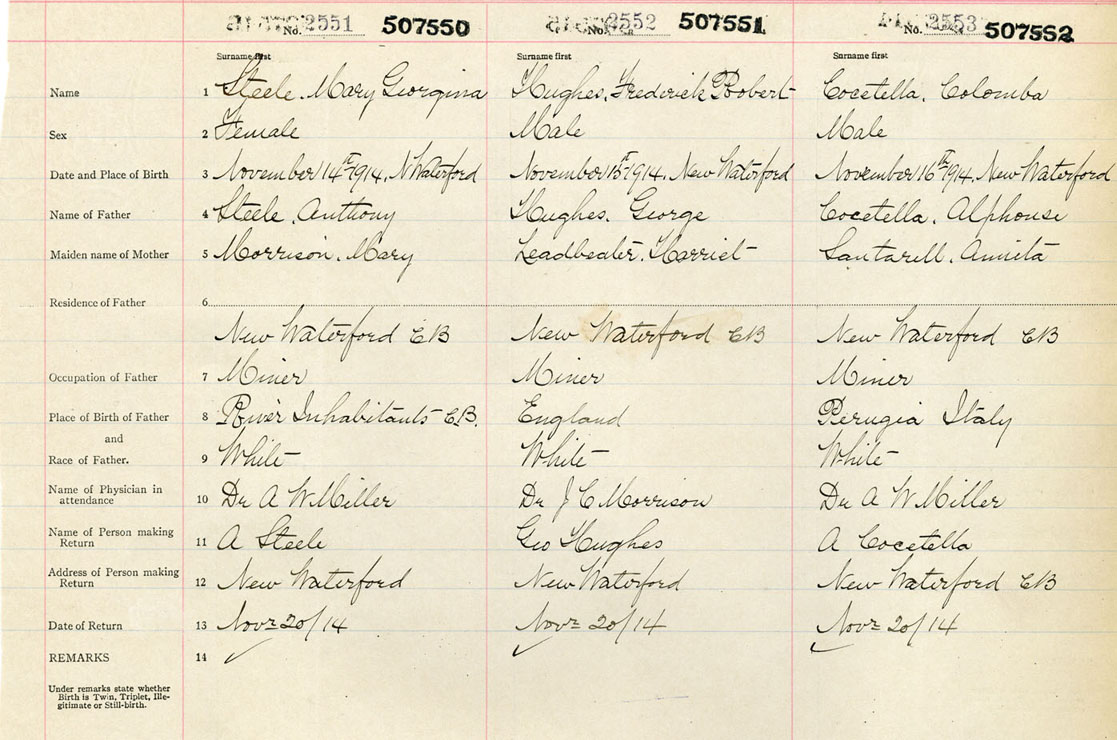 No. 2551 507550 No. 3552 507551 No. 2553 507552
Surname first Surname first Surname first
Name 1 Steele, Mary Georgina Hughes, Frederick Robert Cocetella, Colomba
Sex 2 Female Male Male
Date and Place of Birth 3 November 14th 1914, N Waterford November 15th 1914, New Waterford November 16th 1914, New Waterford
Name of Father 4 Steele, Anthony Hughes, George Cocetella, Alphouse
Maiden name of Mother 5 Morrison, Mary Leadbeater, Harriet Santarell, Annita
Residence of Father 6
New Waterford CB New Waterford CB New Waterford CB
Occupation of Father 7 Miner Miner Miner
Place of Birth of Father 8 River Inhabitants CB. England Perugia Italy
and
Race of Father. 9 White White White
Name of Physician in
attendance 10 Dr A W Miller Dr J C Morrison Dr A W Miller
Name of Person making
Return 11 A Steele Geo Hughes A Cocetella
Address of Person making
Return 12 New Waterford New Waterford New Waterford CB
Date of Return 13 Novr 20/14 Novr 20/14 Novr 20/14
REMARKS 14
Under remarks state whether
Birth is Twin, Triplet, Ille-
gitimate or Still-birth.